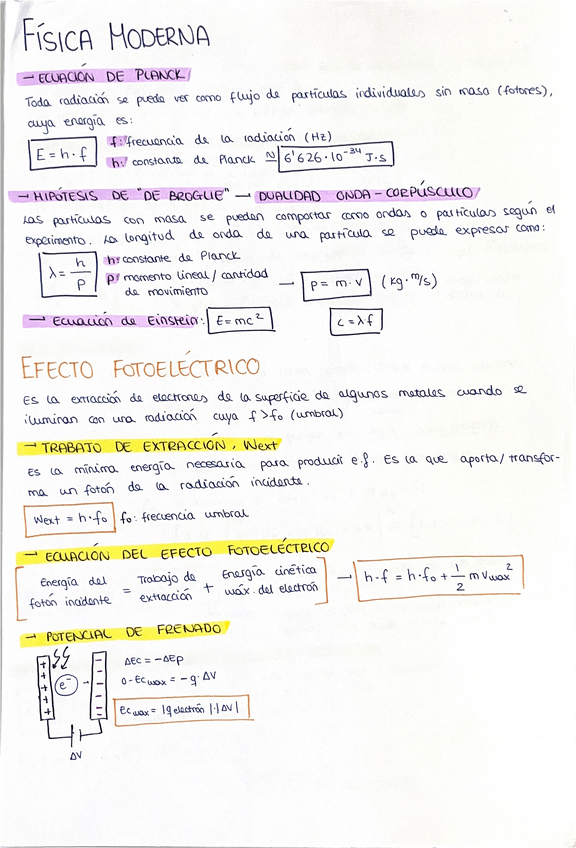 FÍSICA MODERNA
→ ECUACIÓN DE PLANCK/
Toda radiación se puede ver como flujo de partículas individuales sin masa (fotones),
cuya energía es:
E = h · f
f: frecuencia de la radiación (Hz)
h: constante de Planck ≃ 6'626·10⁻³⁴ J·s
→ HIPÓTESIS DE "DE BROGLIE" → DUALIDAD ONDA-CORPÚSCULO/
Las partículas con masa se pueden comportar como ondas o partículas según el
experimento. La longitud de onda de una partícula se puede expresar como:
λ = h/p
h: constante de Planck
p: momento lineal / cantidad
de movimiento
— p = m · v (kg · m/s)
→ Ecuación de Einstein: E = mc²
c = λ·f
EFECTO FOTOELÉCTRICO
Es la extracción de electrones de la superficie de algunos metales cuando se
iluminan con una radiación cuya f > f₀ (umbral)
→ TRABAJO DE EXTRACCIÓN, Wext
Es la mínima energía necesaria para producir e.f. Es la que aporta/transfor-
ma un fotón de la radiación incidente.
Wext = h · f₀ f₀: frecuencia umbral
→ ECUACIÓN DEL EFECTO FOTOELÉCTRICO/
[Energía del fotón incidente = Trabajo de extracción + Energía cinética máx. del electrón] → h · f = h · f₀ + 1/2 m vmax²
→ POTENCIAL DE FRENADO/
+ + + + + e⁻ → − − − − −
ΔEc = −ΔEp
0 − Ec max = −q · ΔV
Ec max = |q electrón| · |ΔV|
ΔV